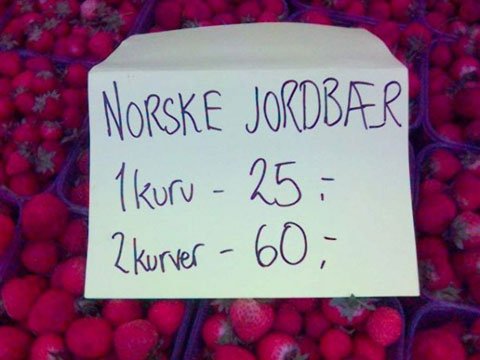 NORSKE JORDBÆR
1 kurv - 25 :-
2 kurver - 60 ;-